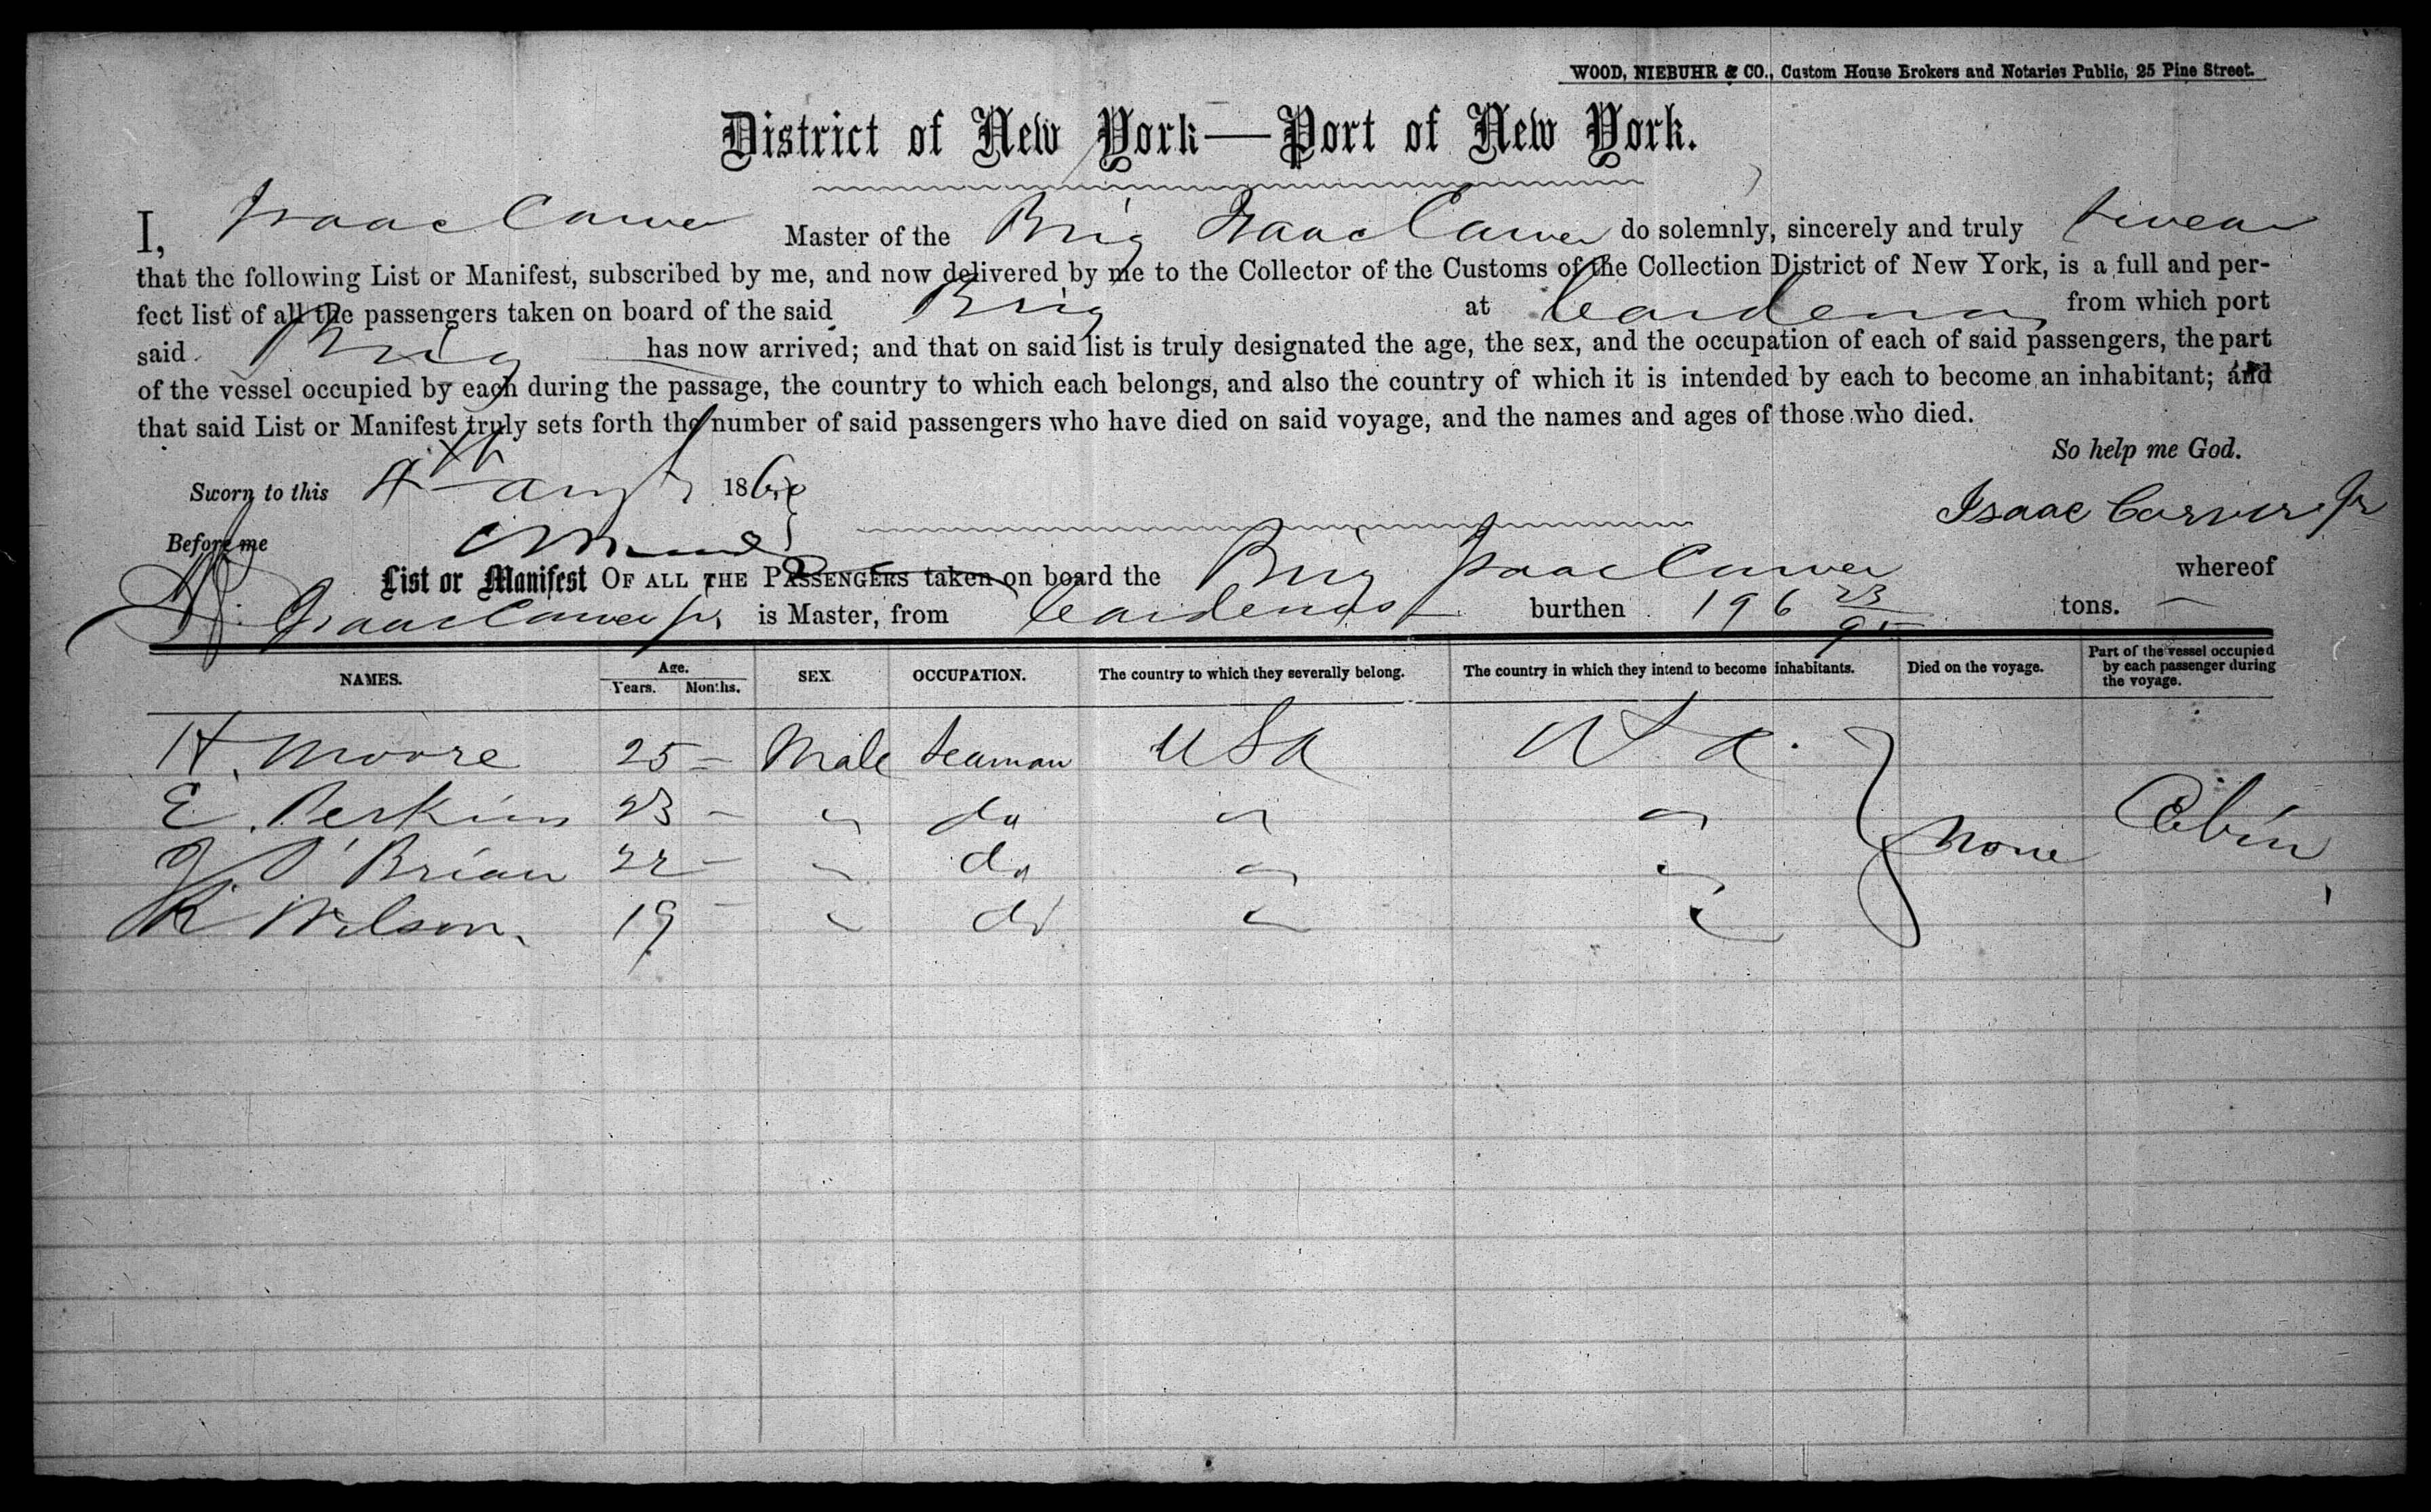 WOOD, NIEBUHR & CO., Custom House Brokers and Notaries Public, 25 Pine Street.
District of New York—Port of New York.
I, Isaac Carver Master of the Brig Isaac Carver do solemnly, sincerely and truly swear
that the following List or Manifest, subscribed by me, and now delivered by me to the Collector of the Customs of the Collection District of New York, is a full and per-
fect list of all the passengers taken on board of the said Brig at Cardenas from which port
said Brig has now arrived; and that on said list is truly designated the age, the sex, and the occupation of each of said passengers, the part
of the vessel occupied by each during the passage, the country to which each belongs, and also the country of which it is intended by each to become an inhabitant; and
that said List or Manifest truly sets forth the number of said passengers who have died on said voyage, and the names and ages of those who died.
So help me God.
Sworn to this 4th Augt 186
Isaac Carver Jr
Before me
List or Manifest OF ALL THE PASSENGERS taken on board the Brig Isaac Carver whereof
Isaac Carver Jr is Master, from Cardenas burthen 196 23/95 tons.
NAMES. Age. Years. Months. SEX. OCCUPATION. The country to which they severally belong. The country in which they intend to become inhabitants. Died on the voyage. Part of the vessel occupied by each passenger during the voyage.
H. Moore 25 – Male Seaman USA USA.
E. Perkins 23 – " do " "
J O'Brian 22 – " do " " None Cabin
R Wilson. 19 – " do " "